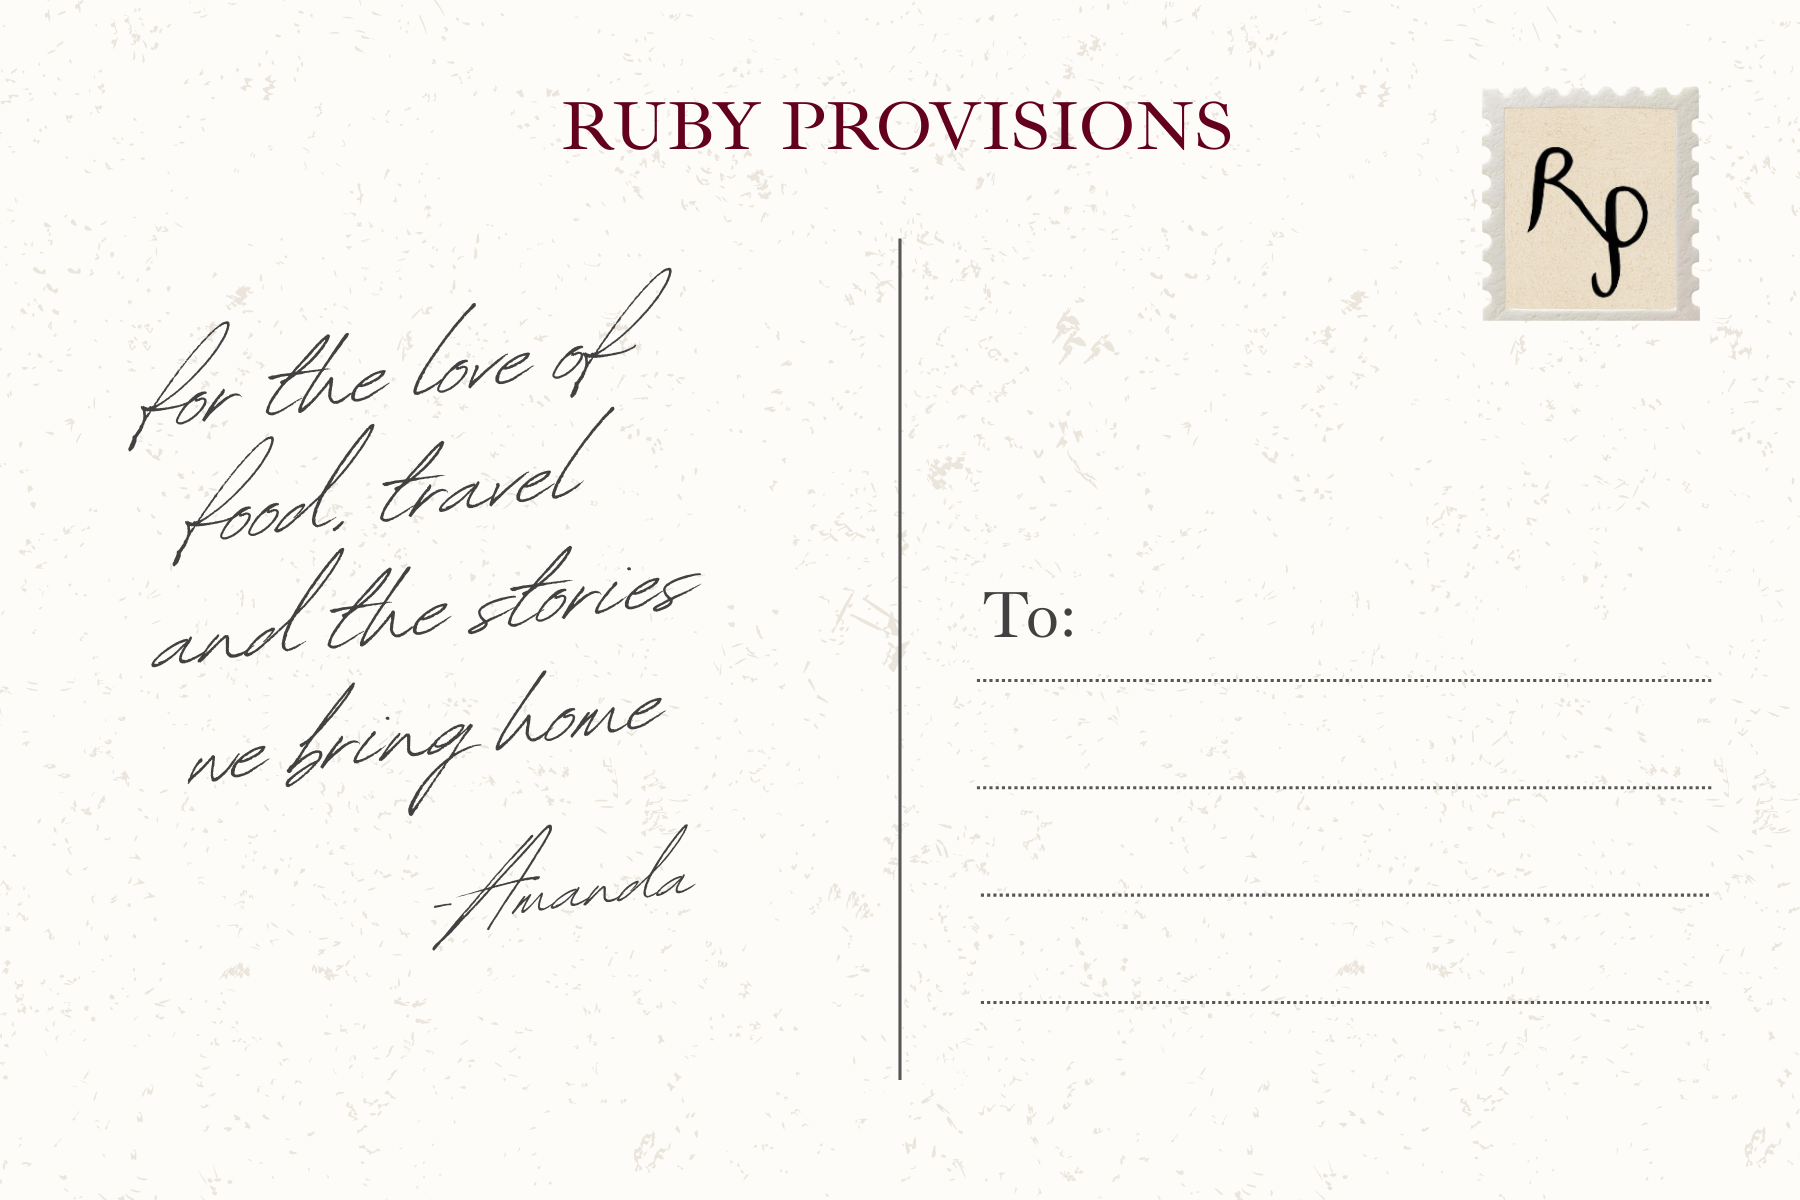 RUBY PROVISIONS
RP
for the love of
food, travel
and the stories
we bring home
-Amanda
To: